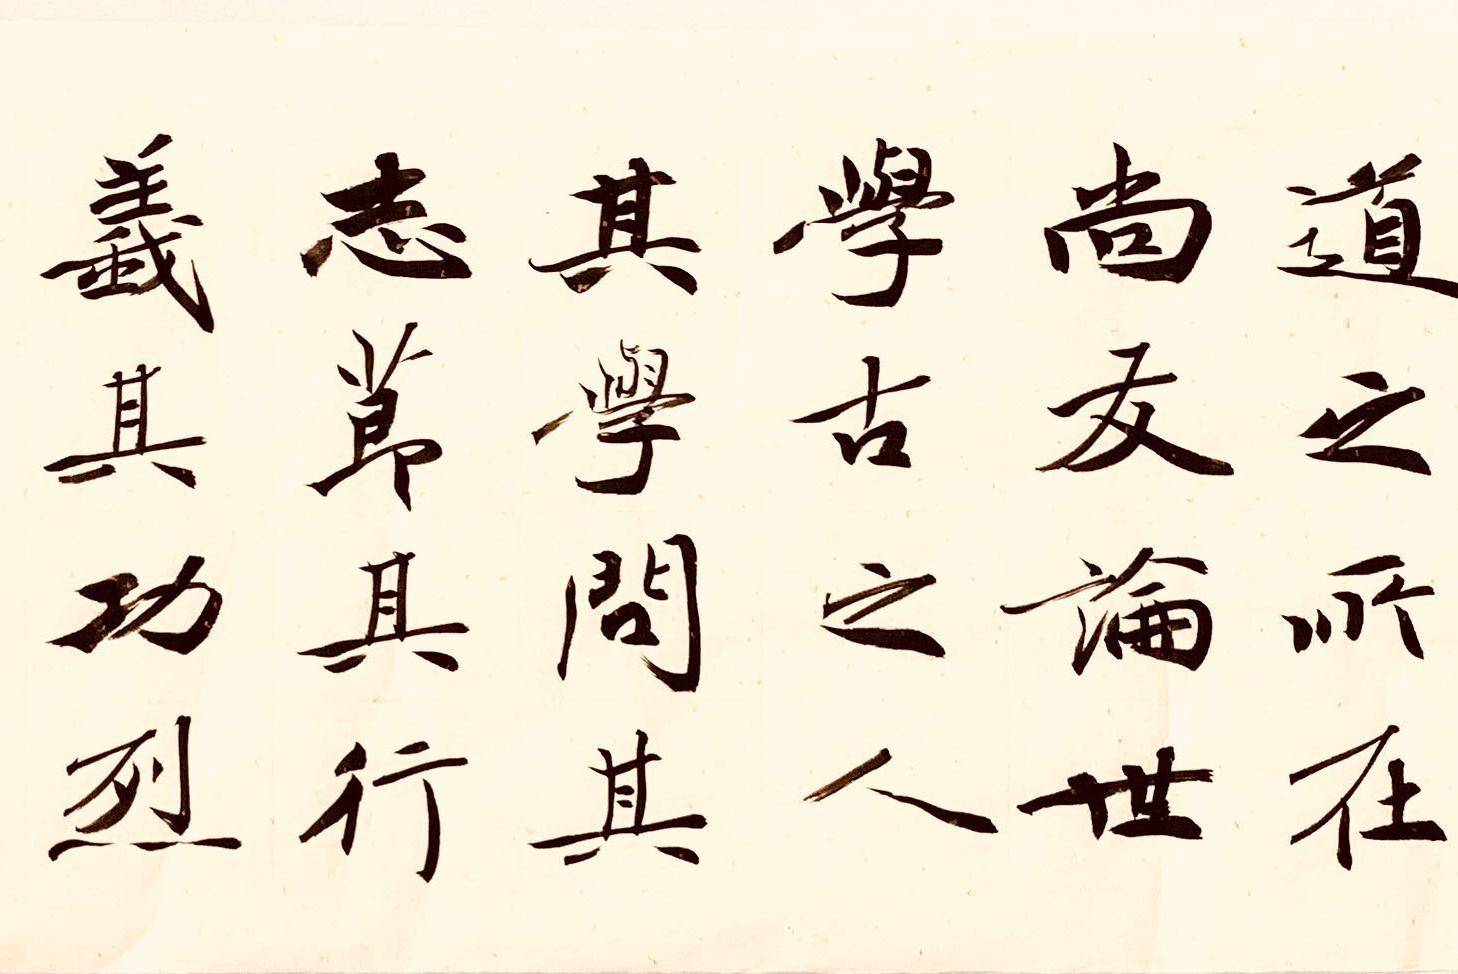 道之所在
尚友論世
學古之人
其學問其
志節其行
義其功烈